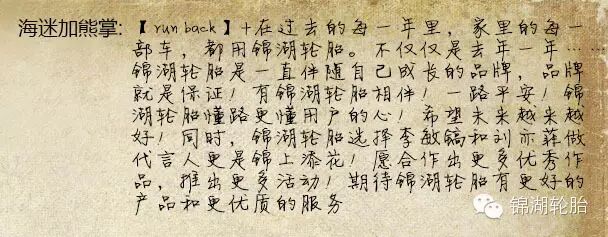 海迷加熊掌:【run back】+在过去的每一年里，家里的每一
部车，都用锦湖轮胎。不仅仅是去年一年……
锦湖轮胎是一直伴随自己成长的品牌，品牌
就是保证！有锦湖轮胎相伴！一路平安！锦
湖轮胎懂路更懂用户的心！希望未来越来越
好！同时，锦湖轮胎选择李敏镐和刘亦菲做
代言人更是锦上添花！愿合作出更多优秀作
品，推出更多活动！期待锦湖轮胎有更好的
产品和更优质的服务
锦湖轮胎